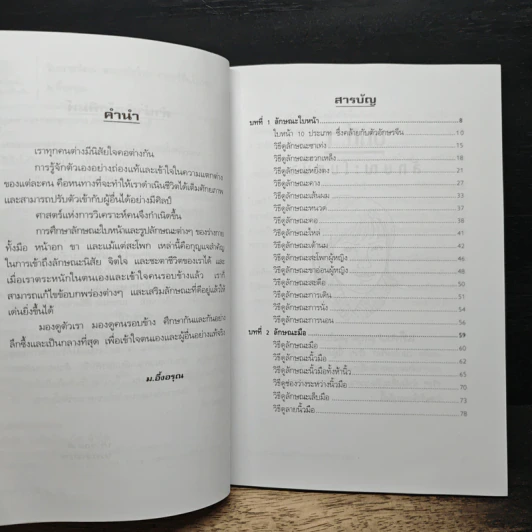 คำนำ
เราทุกคนต่างมีนิสัยใจคอต่างกัน
การรู้จักตัวเองอย่างถ่องแท้และเข้าใจในความแตกต่าง
ของแต่ละคน คือหนทางที่จะทำให้เราดำเนินชีวิตได้เต็มศักยภาพ
และสามารถปรับตัวเข้ากับผู้อื่นได้อย่างมีศิลป์
ศาสตร์แห่งการวิเคราะห์คนจึงกำเนิดขึ้น
การศึกษาลักษณะใบหน้าและรูปลักษณะต่างๆ ของร่างกาย
ทั้งมือ หน้าอก ขา และแม้แต่สะโพก เหล่านี้คือกุญแจสำคัญ
ในการเข้าถึงลักษณะนิสัย จิตใจ และชะตาชีวิตของเราได้ และ
เมื่อเราตระหนักในตนเองและเข้าใจคนรอบข้างแล้ว เราก็
สามารถแก้ไขข้อบกพร่องต่างๆ และเสริมลักษณะที่ดีอยู่แล้วให้
เด่นยิ่งขึ้นได้
มองดูตัวเรา มองดูคนรอบข้าง ศึกษากันและกันอย่าง
ลึกซึ้งและเป็นกลางที่สุด เพื่อเข้าใจตนเองและผู้อื่นอย่างแท้จริง
ม.อึ้งอรุณ
สารบัญ
บทที่ 1 ลักษณะใบหน้า 8
ใบหน้า 10 ประเภท ซึ่งคล้ายกับตัวอักษรจีน 10
วิธีดูลักษณะซาเท่ง 15
วิธีดูลักษณะฮวกเหล็ง 17
วิธีดูลักษณะหยิ่งตง 21
วิธีดูลักษณะคาง 27
วิธีดูลักษณะเส้นผม 31
วิธีดูลักษณะหนวด 33
วิธีดูลักษณะคอ 38
วิธีดูลักษณะไหล่ 41
วิธีดูลักษณะเต้านม 42
วิธีดูลักษณะสะโพกผู้หญิง 46
วิธีดูลักษณะขาอ่อนผู้หญิง 48
วิธีดูลักษณะสะดือ 50
วิธีดูลักษณะการเดิน 51
วิธีดูลักษณะการนั่ง 54
วิธีดูลักษณะการนอน 56
บทที่ 2 ลักษณะมือ 59
วิธีดูลักษณะมือ 60
วิธีดูลักษณะนิ้วมือ 62
วิธีดูลักษณะนิ้วมือทั้งห้านิ้ว 65
วิธีดูช่องว่างระหว่างนิ้วมือ 70
วิธีดูลักษณะเล็บมือ 73
วิธีดูลายนิ้วมือ 78